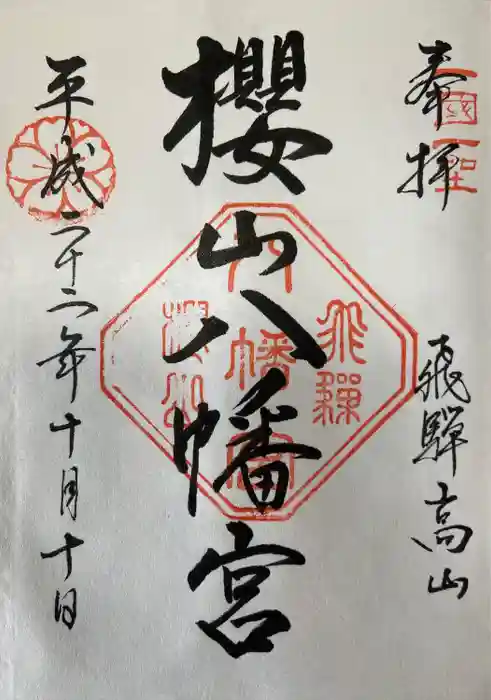 奉拝
飛騨高山
櫻山八幡宮
平成二十二年十月十日
飛騨
八幡宮
櫻山